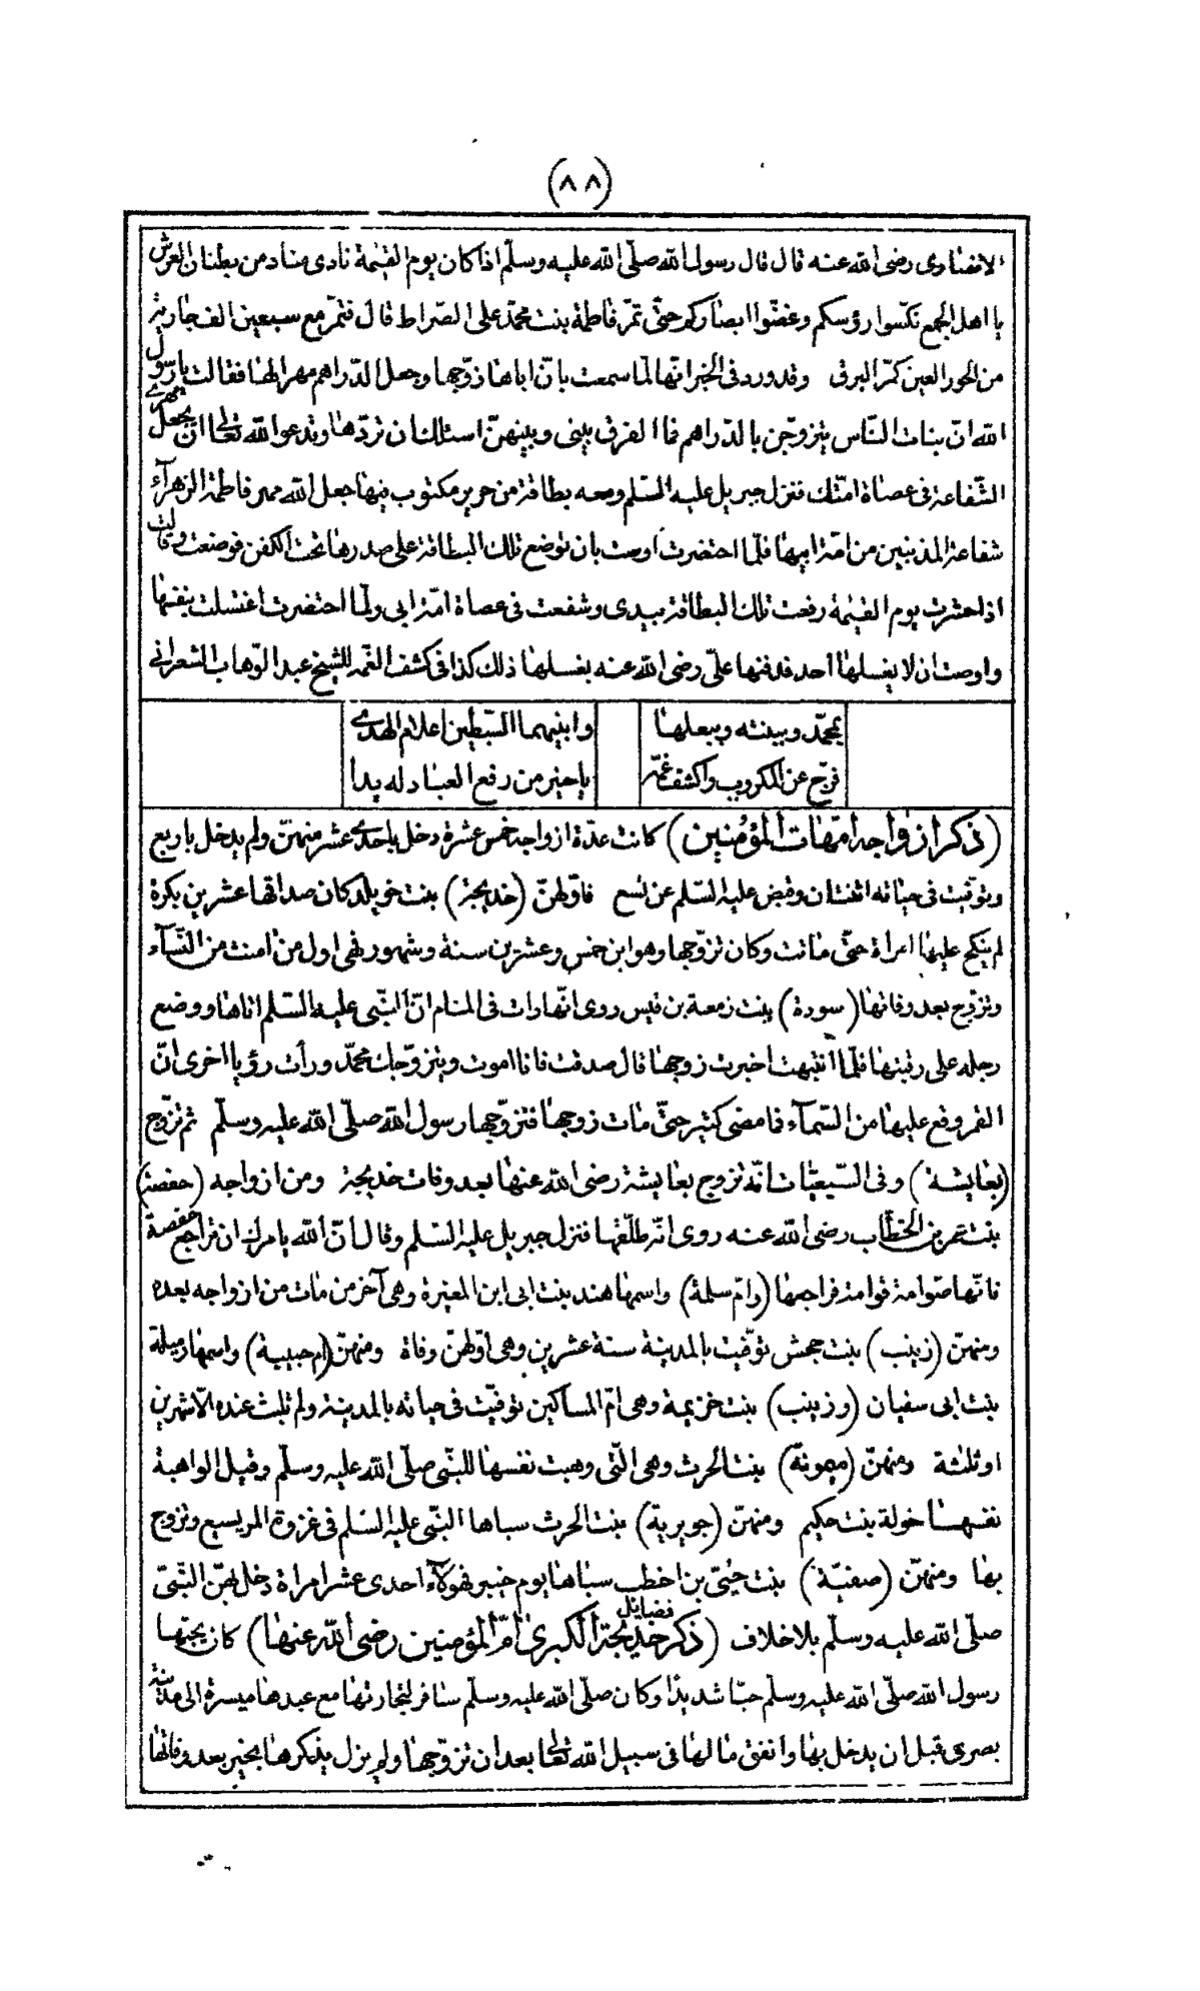 (٨٨)
الانصارى رضى الله عنه قال قال رسول الله صلّى الله عليه وسلّم اذا كان يوم القيٰمة نادى مناد من بطنان العرش
يا اهل الجمع نكّسوا رؤسكم وغضّوا ابصاركم حتّى تمرّ فاطمة بنت محمّد على الصّراط قال فتمرّ مع سبعين الف جارية
من الحور العين كمرّ البرق وقد ورد فى الخبر انّها لمّا سمعت بانّ اباها زوّجها وجعل الدّراهم مهرا لها فقالت يا رسول
الله انّ بنات النّاس يتزوّجن بالدّراهم فما الفرق بينى وبينهنّ اسئلك ان تردّها وتدعو الله تعالى ان يجعل مهرى
الشّفاعة فى عصاة امّتك فنزل جبريل عليه السّلم ومعه بطاقة من حرير مكتوب فيها جعل الله مهر فاطمة الزهرآء
شفاعة المذنبين من امّة ابيها فلمّا احتضرت اوصت بان توضع تلك البطاقة على صدرها تحت الكفن فوضعت وقالت
اذا حشرت يوم القيٰمة رفعت تلك البطاقة بيدى وشفعت فى عصاة امّة ابى ولمّا احتضرت اغتسلت بنفسها
واوصت ان لا يغسلها احد فدفنها علىّ رضى الله عنه بغسلها ذلك كذا فى كشف الغمّه للشيخ عبد الوّهاب الشعرانى
بمحمّد وببنته وببعلها وابنيهما السّبطين اعلام الهدى
فرّج عن المكروب واكشف غمّه يا خير من رفع العباد له يدا
(ذكر ازواجه امّهات المؤمنين) كانت عدّة ازواجه خمس عشرة دخل باحدى عشر منهنّ ولم يدخل باربع
وتوفّيت فى حياته اثنتان وقبض عليه السّلم عن تسع فاوّلهنّ (خديجة) بنت خويلد كان صداقها عشرين بكرة
لم ينكح عليها امراة حتّى ماتت وكان تزوّجها وهو ابن خمس وعشرين سنة وشهور فهى اول من امنت من النّسآء
وتزوّج بعد وفاتها (سودة) بنت زمعة بن قيس روى انّها رات فى المنام انّ النّبى عليه السّلم اتاها ووضع
رجله على رقبتها فلمّا انتبهت اخبرت زوجها قال صدقت فانا اموت ويتزوّجك محمّد ورأت رؤيا اخرى انّ
القمر وقع عليها من السّمآء فما مضى كثير حتّى مات زوجها فتزوّجها رسول الله صلّى الله عليه وسلّم ثم تزوّج
(بعايشة) وفى السّبعيّات انّه تزوج بعايشة رضى الله عنها بعد وفات خديجة ومن ازواجه (حفصة)
بنت عمر بن الخطّاب رضى الله عنه روى انّه طلّقها فنزل جبريل عليه السّلم وقال انّ الله يامرك ان تراجع حفصة
فانّها صوّامة قوامة فراجعها (وامّ سلمة) واسمها هند بنت ابى ابن المغيرة وهى آخر من مات من ازواجه بعده
ومنهنّ (زينب) بنت جحش توفّيت بالمدينة سنة عشرين وهى اوّلهنّ وفاة ومنهنّ (ام حبيبة) واسمها رميلة
بنت ابى سفيان (وزينب) بنت خزيمة وهى امّ المساكين توفيّت فى حياته بالمدينة ولم تلبث عنده الّا شهرين
او ثلثة ومنهنّ (ميمونة) بنت الحرث وهى الّتى وهبت نفسها للنبّى صلّى الله عليه وسلّم وقيل الواهبة
نفسها خولة بنت حكيم ومنهنّ (جويرية) بنت الحرث سباها النبّى عليه السّلم فى غزوة المريسيع وتزوج
بها ومنهنّ (صفيّة) بنت حيّى بن اخطب سباها يوم خيبر فهولآء احدى عشر امراة دخل بهنّ النّبىّ
صلّى الله عليه وسلّم بلا خلاف (ذكر فضايل خديجة الكبرى امّ المؤمنين رضى الله عنها) كان يحبّها
رسول الله صلّى الله عليه وسلّم حبّا شديدا وكان صلّى الله عليه وسلّم سافر لتجارتها مع عبدها ميسرة الى مدينة
بصرى قبل ان يدخل بها وانفق مالها فى سبيل الله تعالى بعد ان تزوّجها ولم يزل يذكرها بخير بعد وفاتها